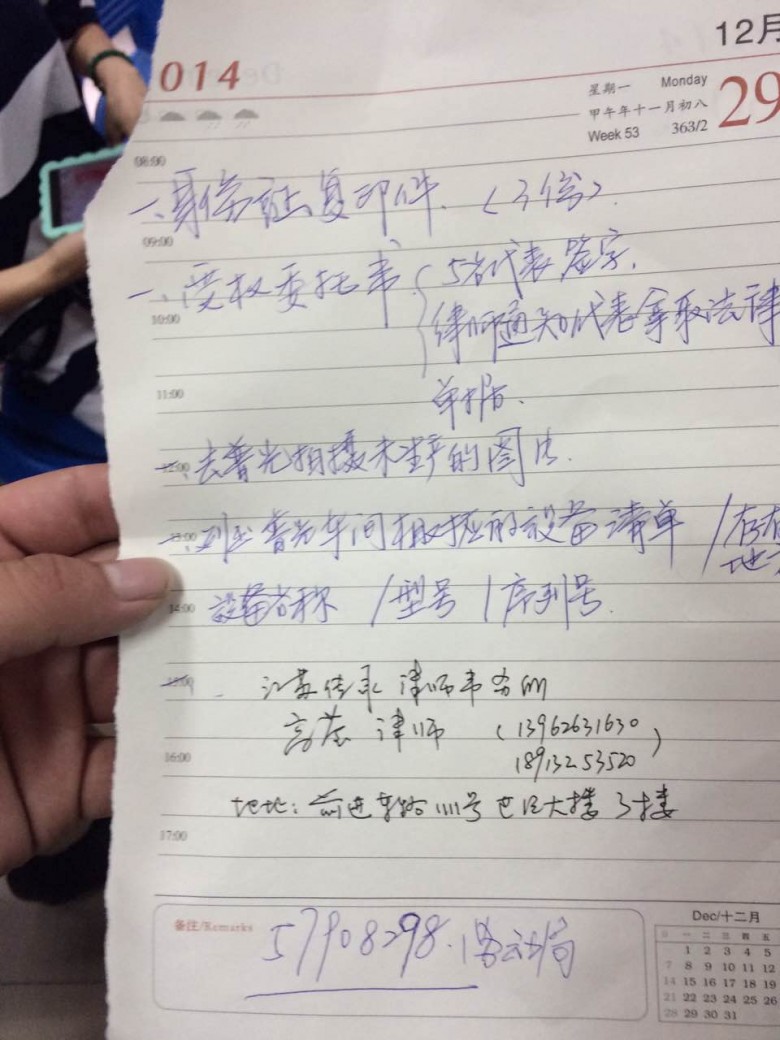 12月
014
星期一 Monday
甲午年十一月初八
29
Week 53 363/2
08:00
一、身份证复印件.(3份).
09:00
一、受权委托书 5名代表签字.
10:00
律师通知代表拿取法律
11:00
单据.
12:00
一、去普光拍摄未生产的图片.
13:00
一、列出普光车间相对应的设备清单 /存放
地
14:00
设备名称 /型号 /序列号.
15:00
江苏 律师事务所
高 律师 (13962631630
18913253520)
16:00
地址:前进东路1111号 大楼3楼
17:00
备注/Remarks
57908298.劳动局
Dec/十二月
日 一 二 三 四 五
1 2 3 4 5
7 8 9 10 11 12
14 15 16 17 18 19
21 22 23 24 25 26
28 29 30 31